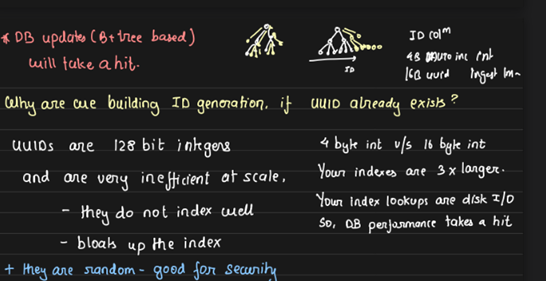 * DB updates (B+ tree based)
will take a hit.
ID
ID colm
4B auto inc int
16B uuid Ingest 1m
Why are we building ID generation, if UUID already exists?
UUIDs are 128 bit integers
and are very inefficient at scale,
- they do not index well
- bloats up the index
+ they are random - good for security
4 byte int v/s 16 byte int
Your indexes are 3x larger.
Your index lookups are disk I/O
So, DB performance takes a hit